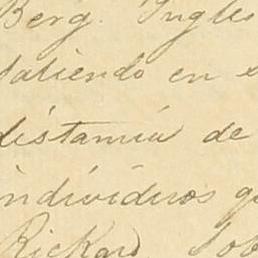 Berg. Ingles
saliendo en
distamia de
individuos
Rickard